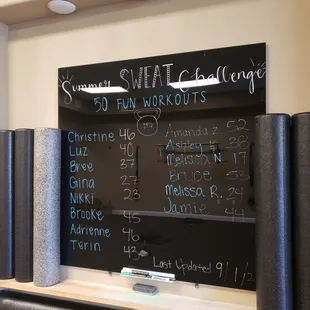 Summer SWEAT Challenge
50 FUN WORKOUTS
Christine 46
Luz 40
Bree 37
Gina 27
Nikki 23
Brooke 45
Adrienne 46
Terin 43
Amanda Z 52
Ashley 38
Melissa N. 17
Bruce 53
Melissa R. 24
Jamie 44
Last Updated 9/1/2